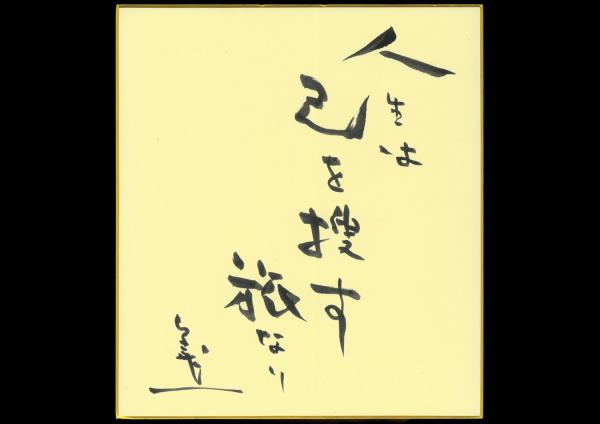 人生は
己を捜す
旅なり